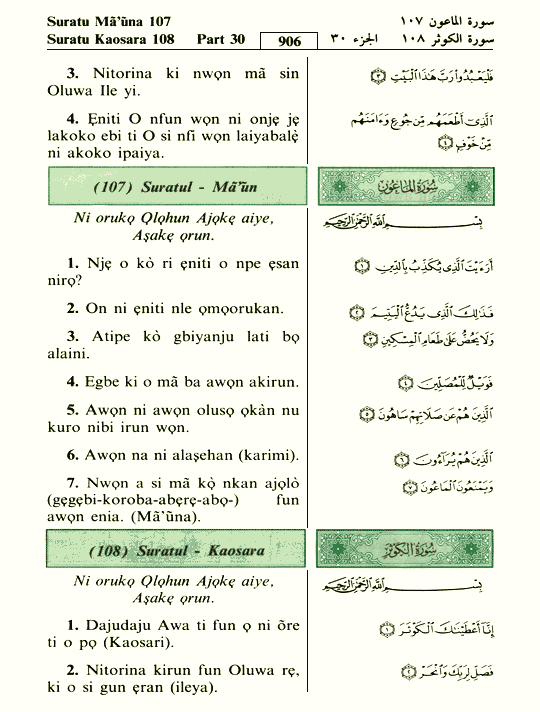 Suratu Mã'ūna 107
سورة الماعون ١٠٧
Suratu Kaosara 108 Part 30 906 الجزء ٣٠ سورة الكوثر ١٠٨
3. Nitorina ki nwọn mã sin
Oluwa Ile yi.
4. Ẹniti O nfun wọn ni onjẹ jẹ
lakoko ebi ti O si nfi wọn laiyabalẹ
ni akoko ipaiya.
(107) Suratul - Mã'ūn
Ni orukọ Ọlọhun Ajọkẹ aiye,
Aṣakẹ ọrun.
1. Njẹ o kò ri ẹniti o npe ẹsan
nirọ?
2. On ni ẹniti nle ọmọorukan.
3. Atipe kò gbiyanju lati bọ
alaini.
4. Egbe ki o mã ba awọn akirun.
5. Awọn ni awọn olusọ ọkàn nu
kuro nibi irun wọn.
6. Awọn na ni alaṣehan (karimi).
7. Nwọn a si mã kọ̀ nkan ajọlò
(gẹgẹbi-koroba-abẹrẹ-abọ-) fun
awọn enia. (Mã'ũna).
(108) Suratul - Kaosara
Ni orukọ Ọlọhun Ajọkẹ aiye,
Aṣakẹ ọrun.
1. Dajudaju Awa ti fun ọ ni õre
ti o pọ (Kaosari).
2. Nitorina kirun fun Oluwa rẹ,
ki o si gun ẹran (ileya).
فَلْيَعْبُدُوا۟ رَبَّ هَـٰذَا ٱلْبَيْتِ ٣
ٱلَّذِىٓ أَطْعَمَهُم مِّن جُوعٍ وَءَامَنَهُم
مِّنْ خَوْفٍۭ ٤
سُورَةُ المَاعُون
بِسْمِ ٱللَّهِ ٱلرَّحْمَـٰنِ ٱلرَّحِيمِ
أَرَءَيْتَ ٱلَّذِى يُكَذِّبُ بِٱلدِّينِ ١
فَذَٰلِكَ ٱلَّذِى يَدُعُّ ٱلْيَتِيمَ ٢
وَلَا يَحُضُّ عَلَىٰ طَعَامِ ٱلْمِسْكِينِ ٣
فَوَيْلٌ لِّلْمُصَلِّينَ ٤
ٱلَّذِينَ هُمْ عَن صَلَاتِهِمْ سَاهُونَ ٥
ٱلَّذِينَ هُمْ يُرَآءُونَ ٦
وَيَمْنَعُونَ ٱلْمَاعُونَ ٧
سُورَةُ الكَوْثَر
بِسْمِ ٱللَّهِ ٱلرَّحْمَـٰنِ ٱلرَّحِيمِ
إِنَّآ أَعْطَيْنَـٰكَ ٱلْكَوْثَرَ ١
فَصَلِّ لِرَبِّكَ وَٱنْحَرْ ٢